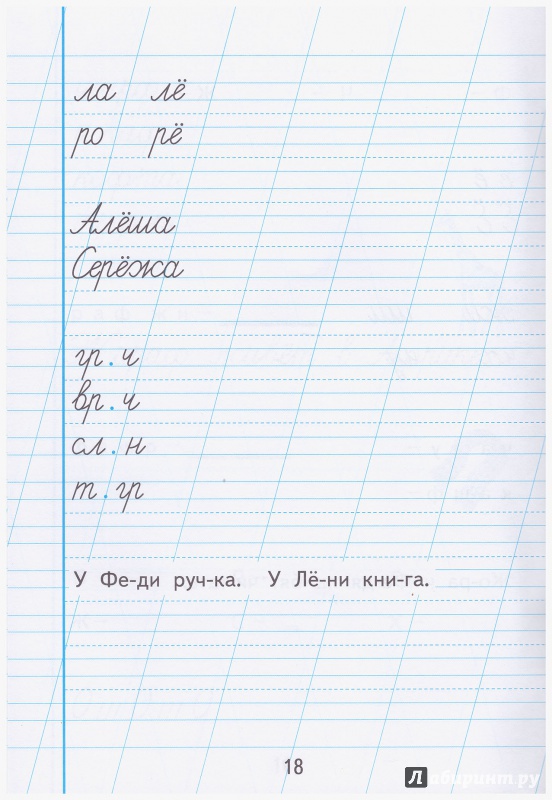 ла лё
ро рё
Алёша
Серёжа
гр.ч
вр.ч
сл.н
т.гр
У Фе-ди руч-ка. У Лё-ни кни-га.
18
Лабиринт.ру